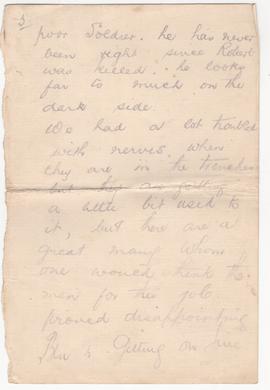 5
poor Soldier. he has never
been right since Robert
was killed. he looks
far to much on the
dark side
We had a lot troubled
with nerves when
they are in the trenches
but
a little bit used to
it, but here are a
great many whom
one would think the
men for the job
proved disappointing
is getting on fine